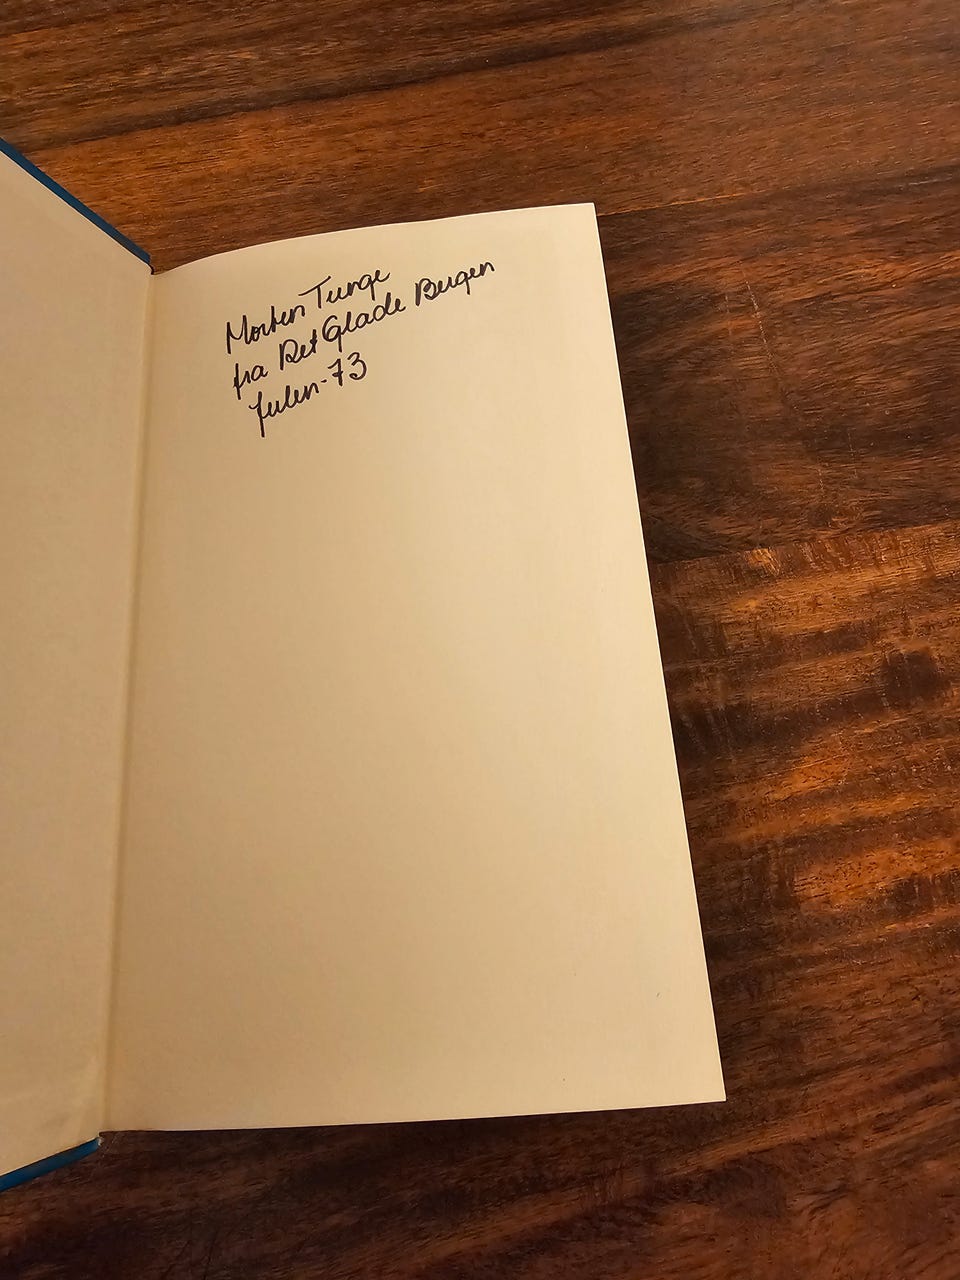 Morten Tunge
fra Det Glade Bergen
Julen-73